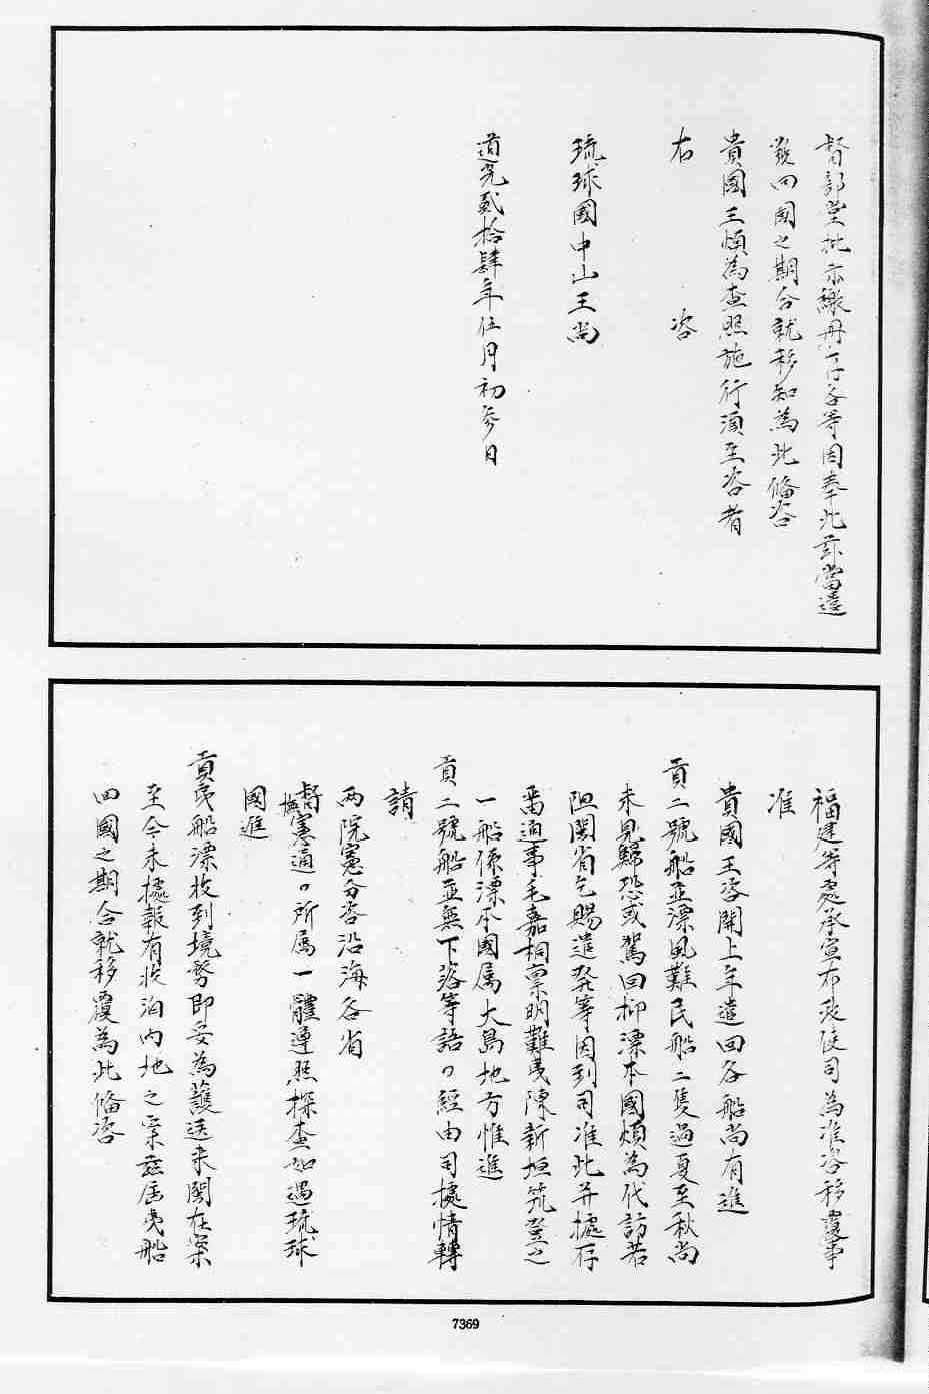 督部堂批示繳冊存各等因奉此茲當遣
發回國之期合就移知為此備咨
貴國王煩為查照施行須至咨者
右　咨
琉球國中山王尚
道光貳拾肆年伍月初參日
福建等處承宣布政使司為准咨移覆事
准
貴國王咨開上年遣回各船尚有進
貢二號船並漂風難民船二隻過夏至秋尚
未見歸恐或駕回抑漂本國煩為代訪若
阻閩省乞賜遣發等因到司准此並據存
留通事毛嘉桐稟明難夷陳新垣筑登之
一船係漂本國属大島地方惟進
貢二號船並無下落等語々經由司據情轉
請
兩院憲分咨沿海各省
督撫憲通々所属一體連照探查如遇琉球
國進
貢夷船漂收到境務即妥為護送来閩在案
至今未據報有收泊內地之案茲屆夷船
回國之期合就移覆為此備咨
7369